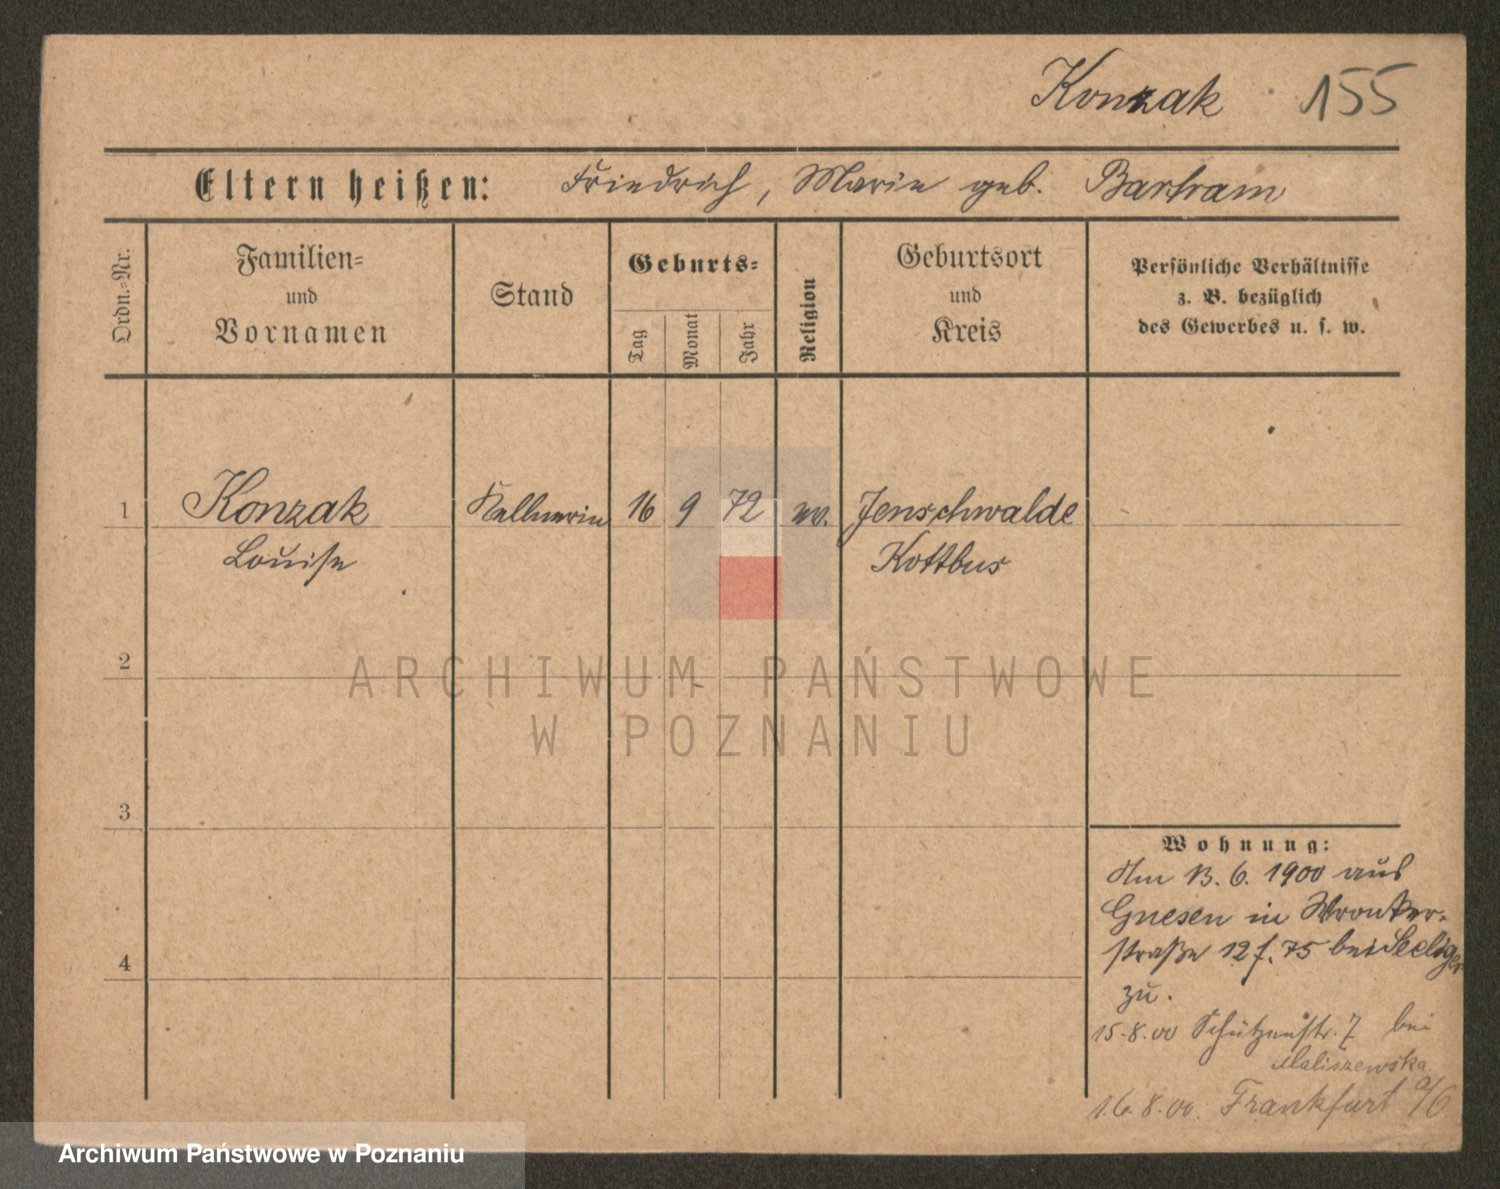 Konzak 155
Eltern heißen: Friedrich, Marie geb. Bartram
Ordn.-Nr.
Familien-
und
Vornamen
Stand
Geburts-
Tag
Monat
Jahr
Religion
Geburtsort
und
Kreis
Persönliche Verhältnisse
z. B. bezüglich
des Gewerbes u. s. w.
1 Konzak Kellnerin 16 9 72 ev. Jenschwalde
Louise Kottbus
2
3
4
Wohnung:
Am 13. 6. 1900 aus
Gnesen in Wronker-
straße 12 f. 75 bei Seeliger
zu.
15.8.00 Schützenstr. 7 bei
Maliszewska.
16.8.00. Frankfurt a/O
ARCHIWUM PAŃSTWOWE
W POZNANIU
Archiwum Państwowe w Poznaniu